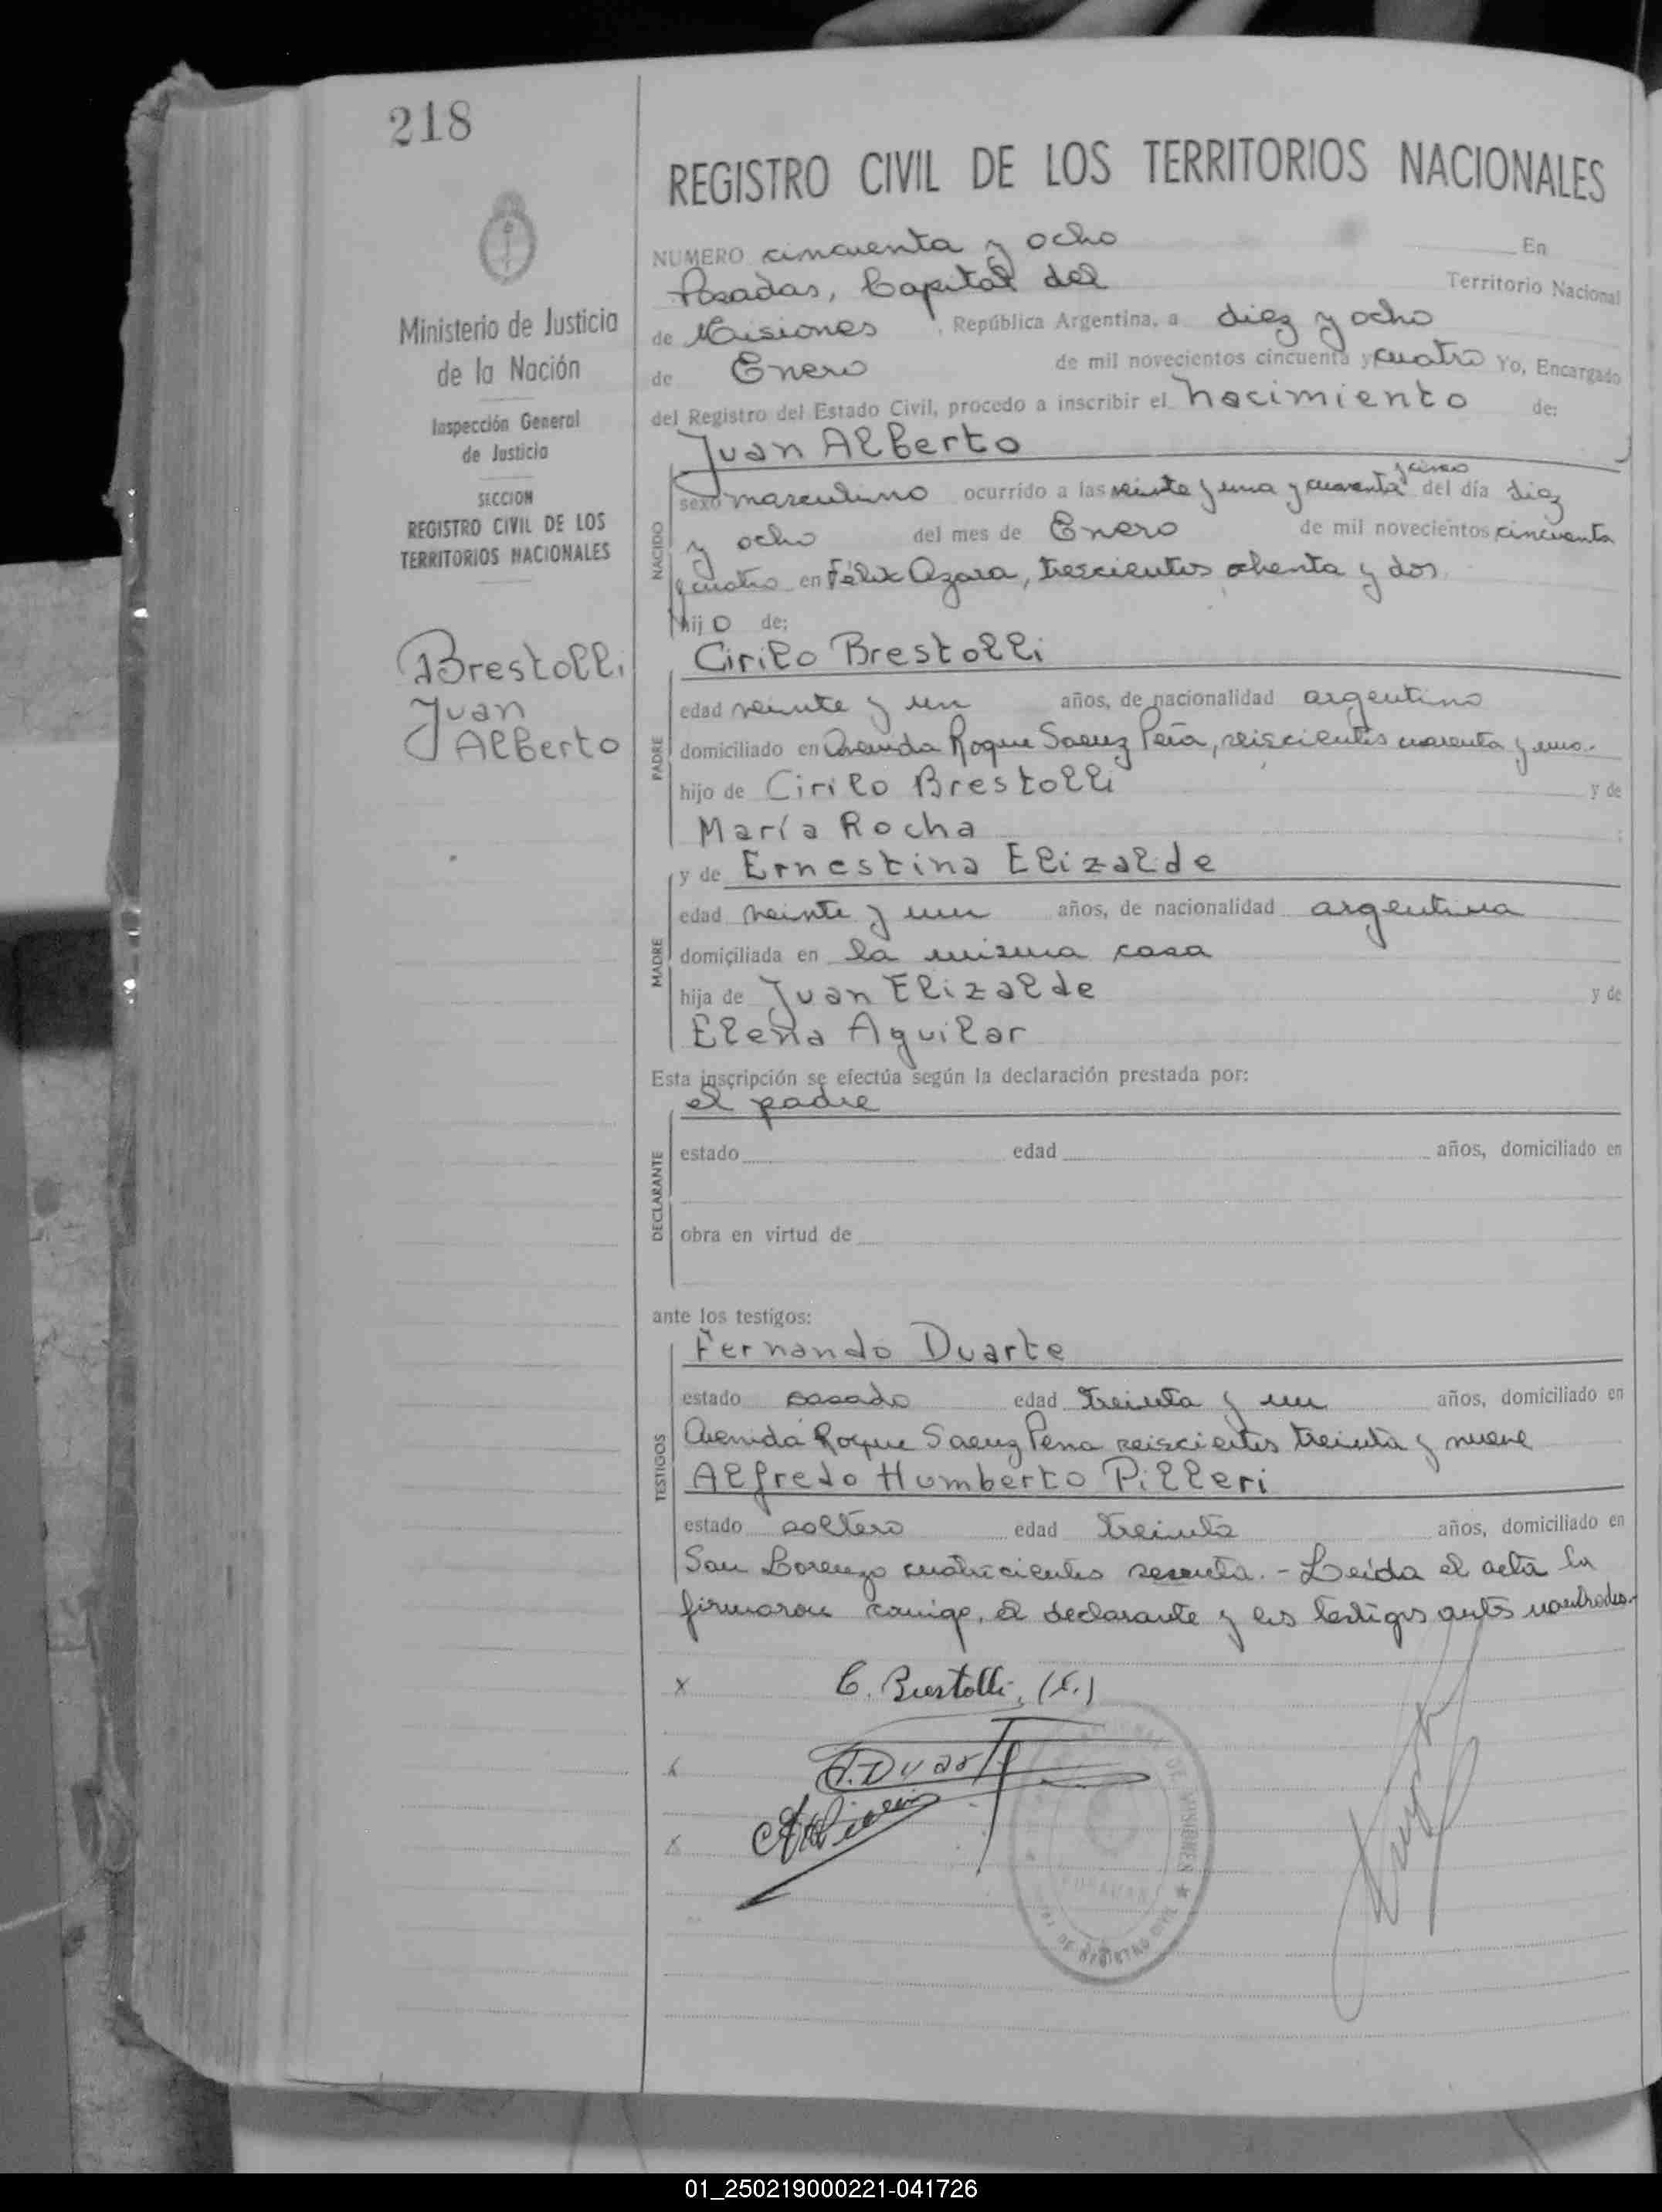 218
REGISTRO CIVIL DE LOS TERRITORIOS NACIONALES
NUMERO cincuenta y ocho En
Posadas, Capital del Territorio Nacional
de Misiones, República Argentina, a diez y ocho
de Enero de mil novecientos cincuenta y cuatro Yo, Encargado
del Registro del Estado Civil, procedo a inscribir el nacimiento de:
Juan Alberto
sexo masculino ocurrido a las veinte y una y cuarenta y cinco del día diez
y ocho del mes de Enero de mil novecientos cincuenta
y cuatro en Félix Azara, trescientos ochenta y dos
hijo de:
Cirilo Brestolli
edad veinte y un años, de nacionalidad argentino
domiciliado en Avenida Roque Saenz Peña, seiscientos cuarenta y uno.
hijo de Cirilo Brestolli y de
María Rocha ;
y de Ernestina Elizalde
edad veinte y un años, de nacionalidad argentina
domiciliada en la misma casa
hija de Juan Elizalde y de
Elena Aguilar
Esta inscripción se efectúa según la declaración prestada por:
el padre
estado edad años, domiciliado en
obra en virtud de
ante los testigos:
Fernando Duarte
estado casado edad treinta y un años, domiciliado en
Avenida Roque Saenz Pena seiscientos treinta y nueve
Alfredo Humberto Pilleri
estado soltero edad treinta años, domiciliado en
San Lorenzo cuatrocientos sesenta. - Leída el acta la
firmaron conmigo, el declarante y los testigos antes nombrados.-
NACIDO
PADRE
MADRE
DECLARANTE
TESTIGOS
Ministerio de Justicia
de la Nación
Inspección General
de Justicia
SECCION
REGISTRO CIVIL DE LOS
TERRITORIOS NACIONALES
Brestolli
Juan
Alberto
x C. Brestolli, (h.)
x F. Duarte
x
DE MISIONES ★
POSADAS
DE REGISTRO CIVIL
01_250219000221-041726